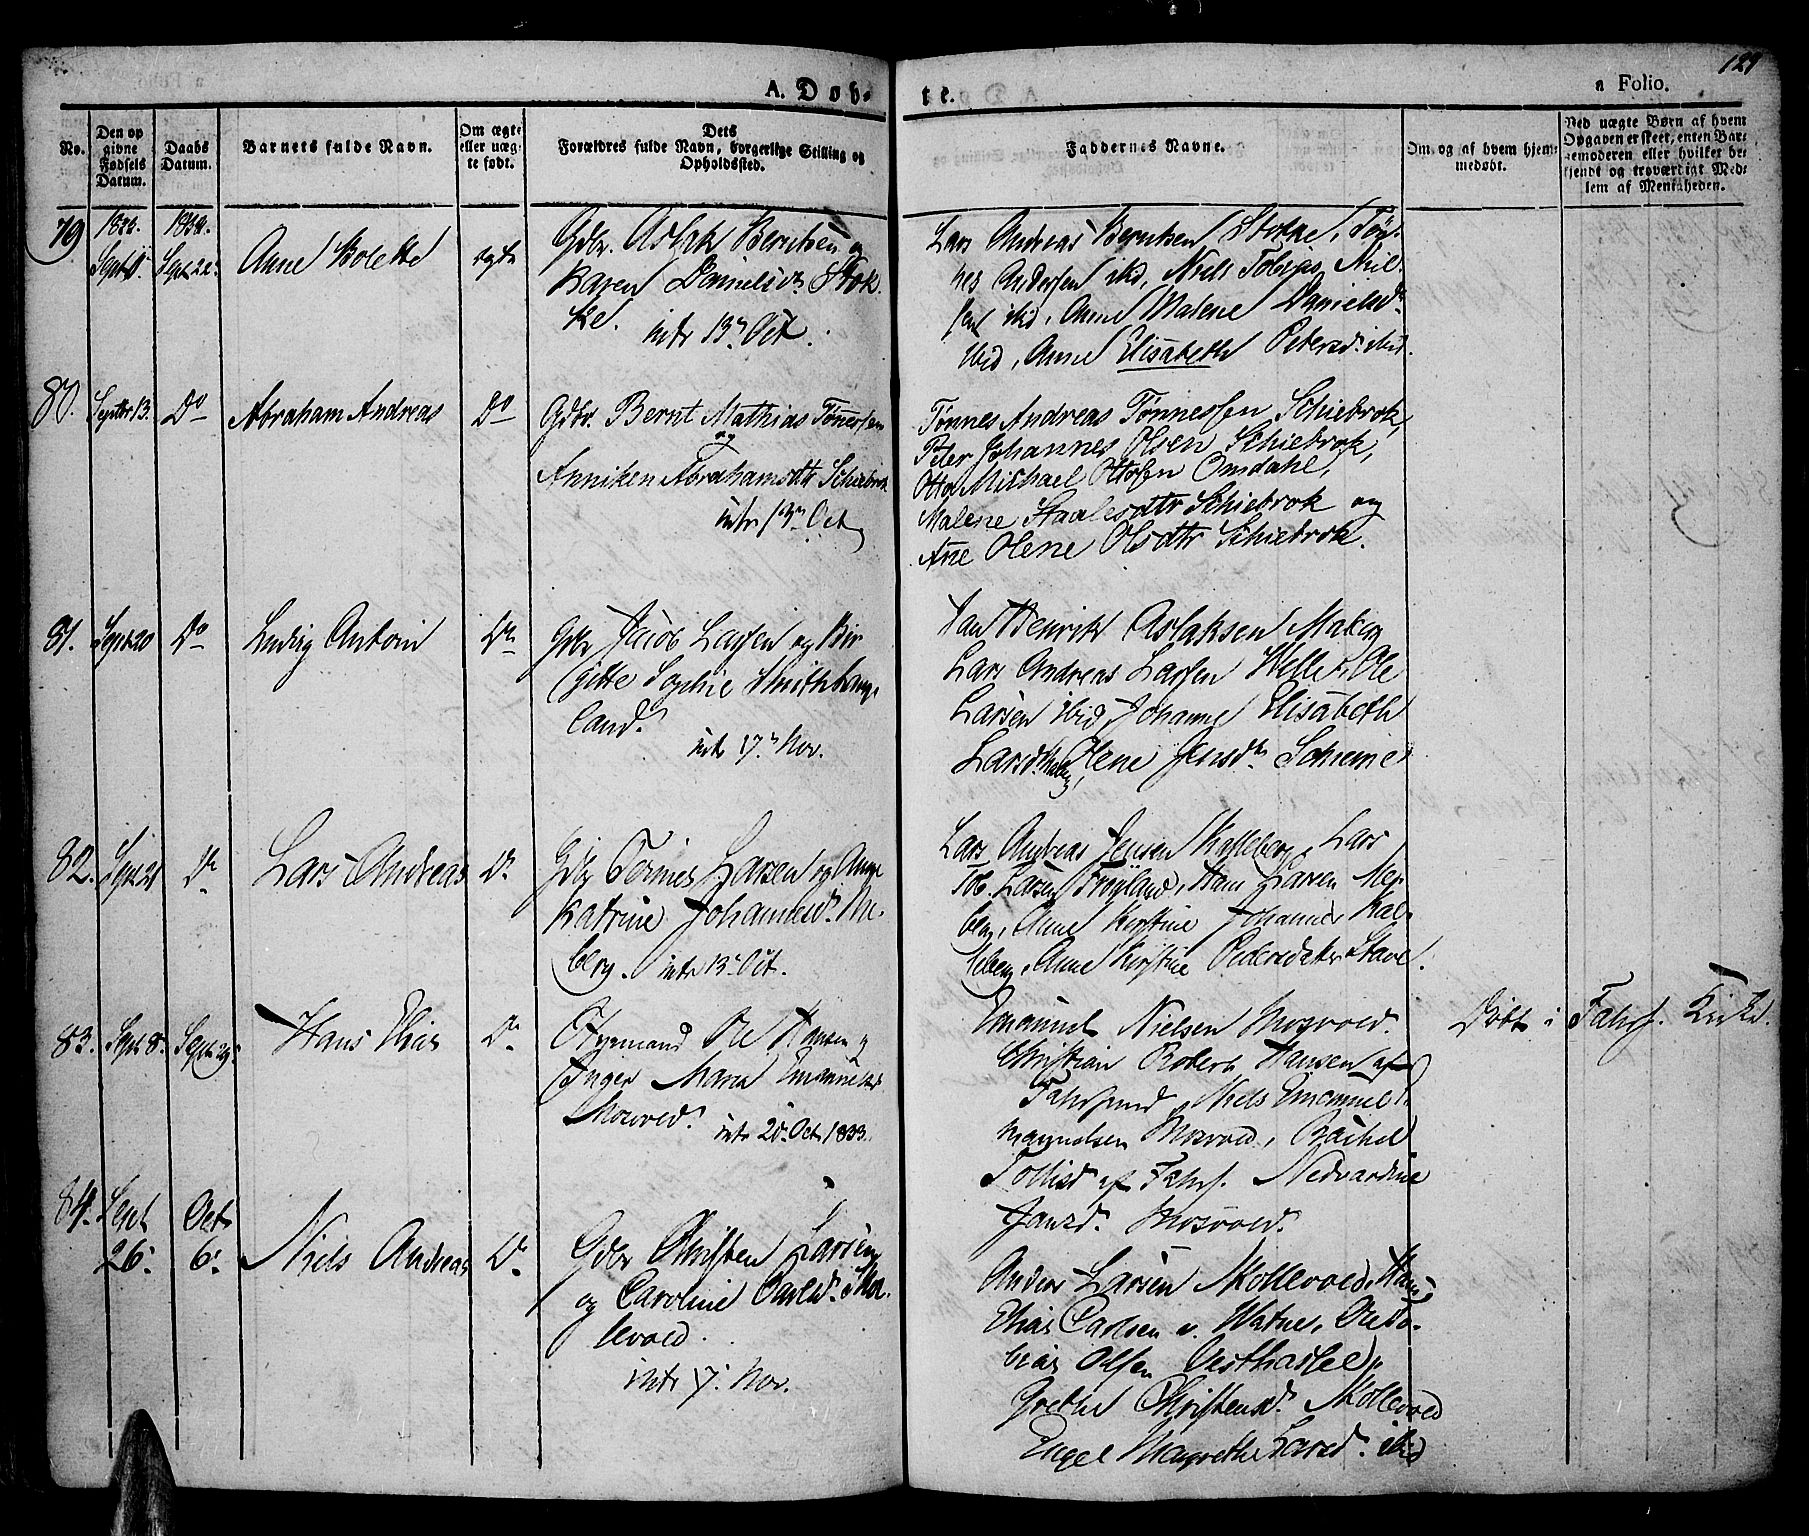 129
A. Døb-
te.
a Folio.
No.
Den op
givne
Fødsels
Datum.
Daabs
Datum.
Barnets fulde Navn.
Om ægte
eller uæg-
te født.
Dets
Forældres fulde Navn, borgerlige Stilling og
Opholdssted.
Faddernes Navne.
Om og af hvem hjem-
medøbt.
Ved uægte Børn af hvem
Opgaven er skeet, enten Bar-
nemoderen eller hvilket be-
kjendt og troværdigt Med-
lem af Menigheden.
79
Sept
Sept 22.
Anne Bolette
ægte
Gdbr. Aslak Berntsen og
Karen Danielsdr. Stok-
ke.
intr 13. Oct.
Lars Andreas Berntsen Stokke, Tøn-
nes Andersen ibid, Niels Tobias Niel-
sen ibid, Anne Malene Danielsdr
ibid, Anne Elisabeth Petersd. ibid.
80.
Septbr 13.
Do
Abraham Andreas
Do
Gdbr. Bernt Mathias Tønnessen
og
Anniken Abrahamsdtr Schiebrok
intr 13. Oct
Tønnes Andreas Tønnessen Schiebrok,
Peter Johannes Olsen Schiebrok,
Otto Michael Ottosen Omdahl,
Malene Staalesdtr Schiebrok og
Ane Olene Olsdtr Schiebrok.
81.
Sept 20
Do
Ludvig Antoni
Do
Gdbr Jacob Larsen og Bir
gitte Sophie Smith Lange
land.
intr 17. Nov.
Jan Henrik Aslaksen
Lars Andreas Larsen Helle, Ole
Larsen ibid, Johanne Elisabeth
Larsd. Olene Jensdr.
82.
Sept 21
Do
Lars Andreas
Do
Gdbr Tønnes Larsen og Anne
Katrine Johannesd. Me-
berg. intr 13. Oct.
Lars Andreas Jensen Kalleberg, Lars
Tob. Larsen Hans Larsen Me-
berg, Anne Kirstine Johannesd. Kal-
leberg, Anne Kirstine Pedersdatter Stave.
83.
Sept 8.
Sept 29.
Hans Elias
Do
Ole Hansen og
Inger Maria Emanuelsd.
Mosvold.
intr 20. Oct. 1833.
Emanuel Nielsen Mosvold.
Christian Robert Hansen af
Fahrsund, Niels Emanuel
manuelsen Mosvold, Rachel
Tollisd. af Fahrs. Nedvardine
Jansd. Mosvold.
Døbt i Fahrs. Kirke.
84.
Sept
26.
Octr
6.
Niels Andreas
Do
Gdbr Christen Larsen
og Caroline Carlsd. Mol-
levold.
intr 17. Nov.
Anders Larsen Mollevold, Hans
Elias Carlsen v. Watne, Ole To-
bias Olsen Vesthassel,
Grethe Christensd. Mollevold
Engel Margrethe Larsd. ibid